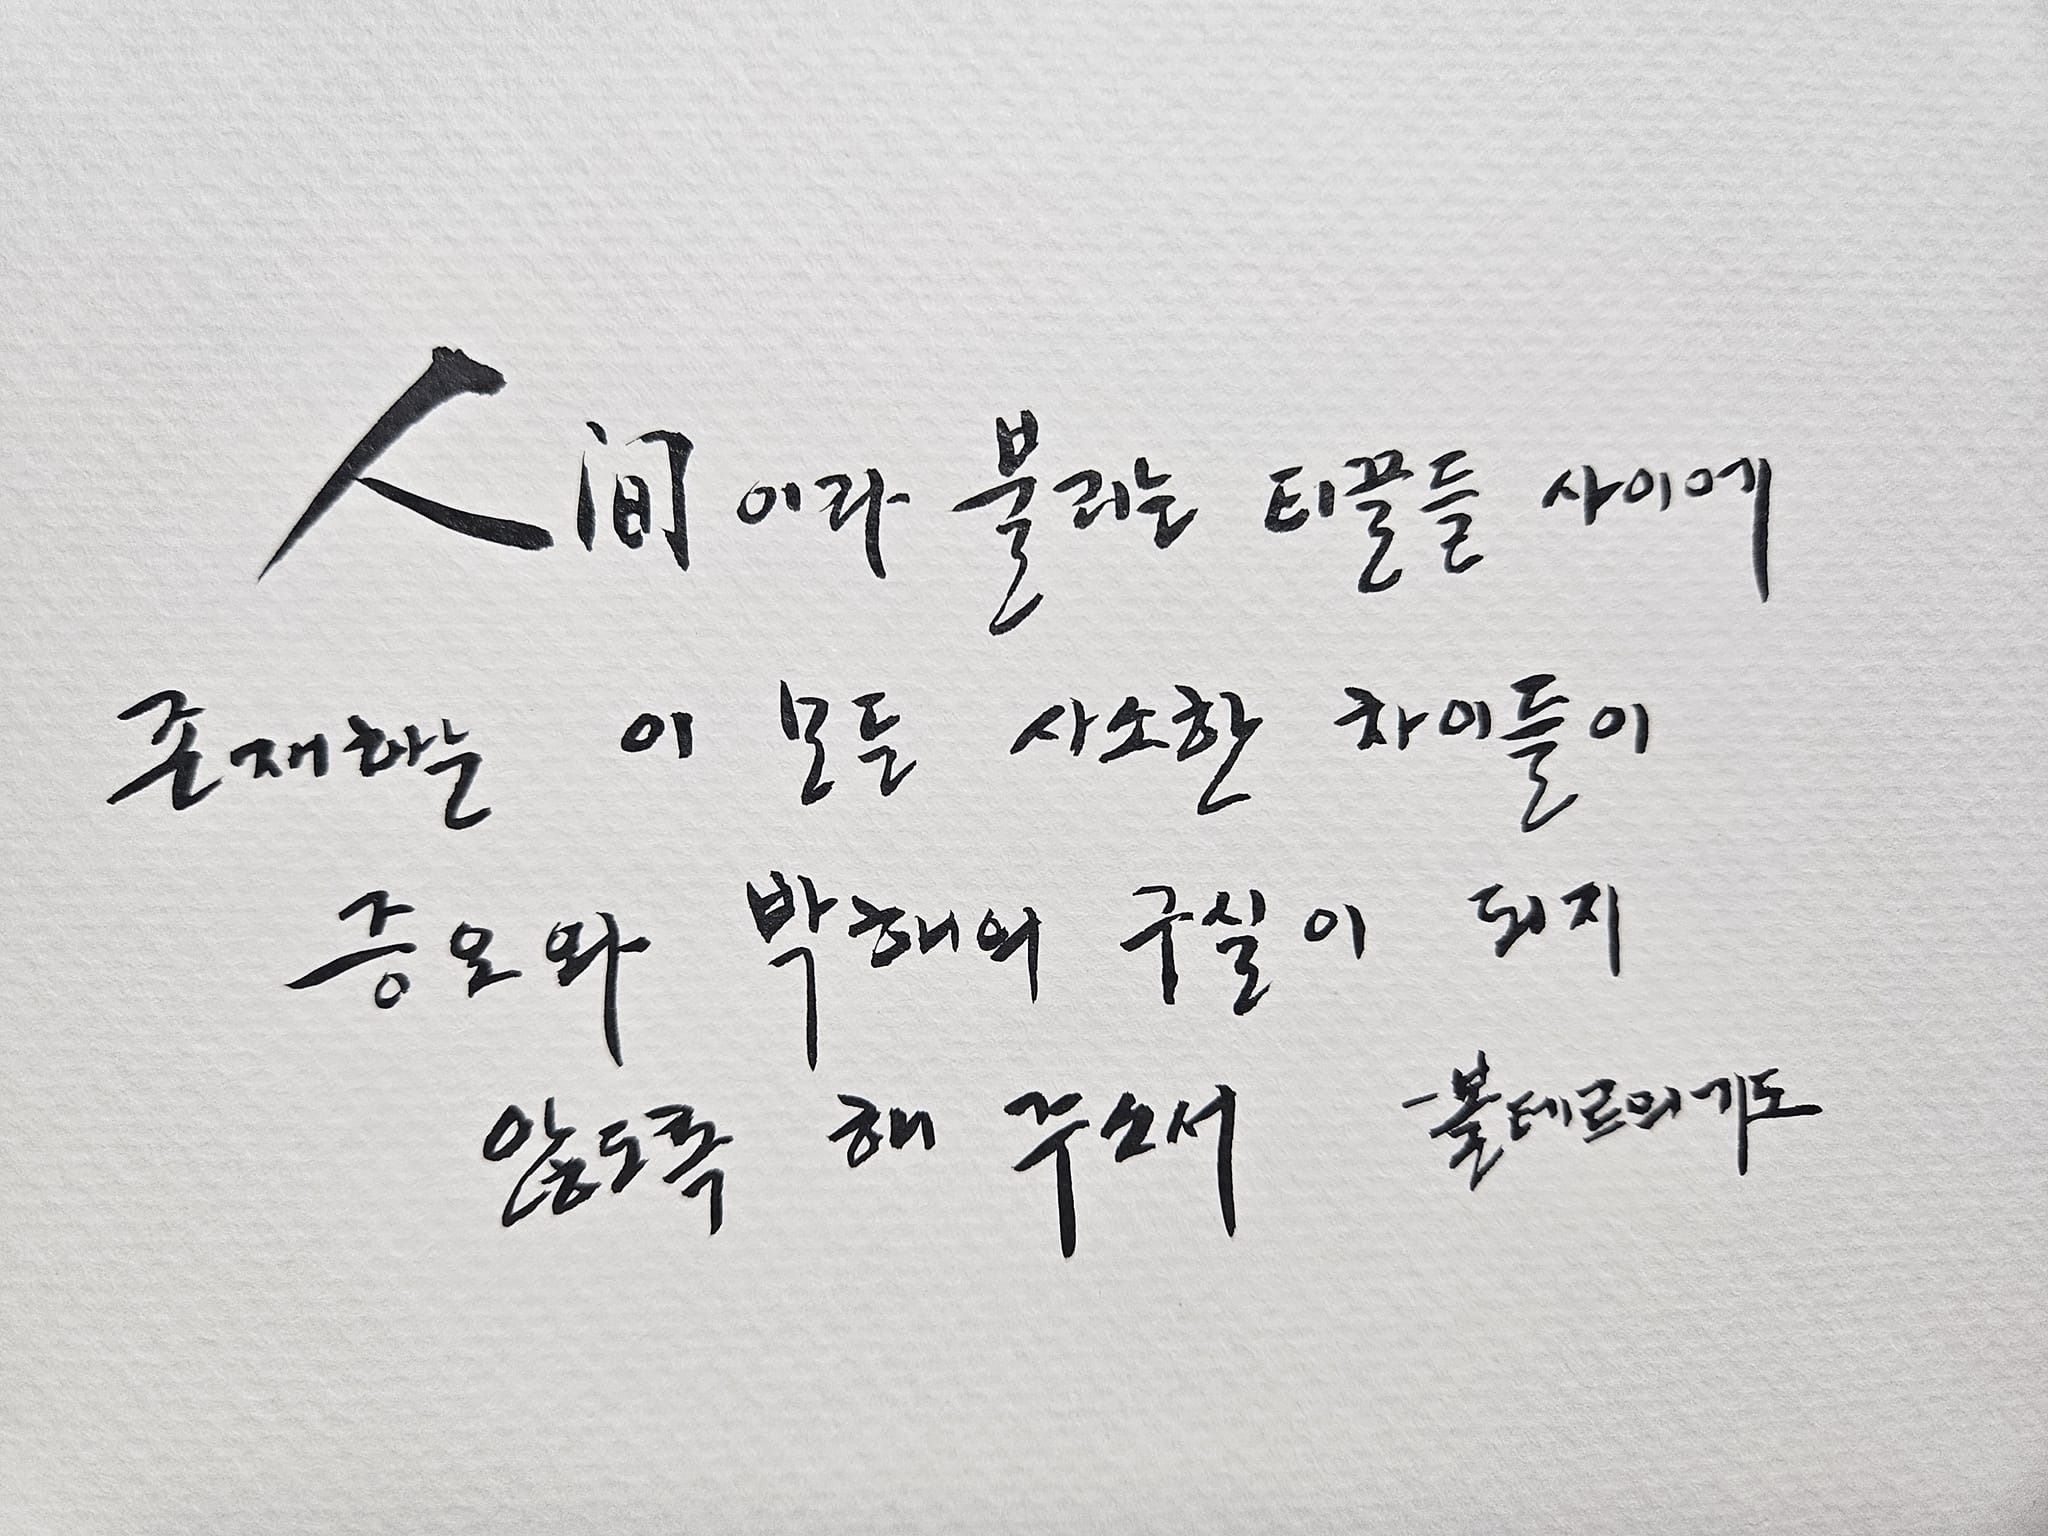 人间이라 불리는 티끌들 사이에
존재하는 이 모든 사소한 차이들이
증오와 박해의 구실이 되지
않도록 해 주소서
-볼테르의 기도